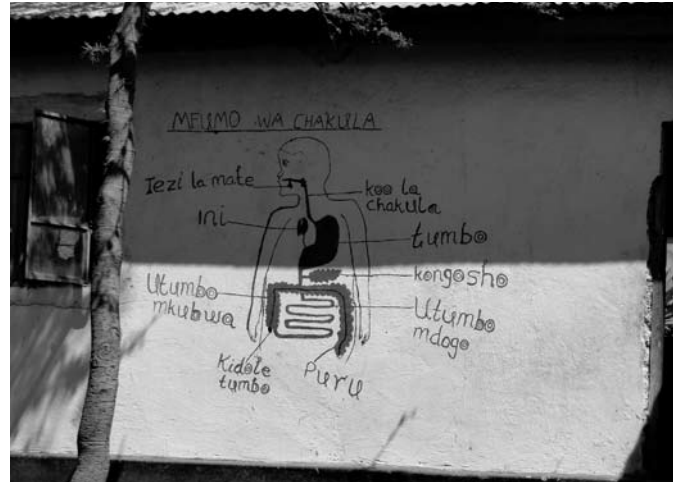 MFUMO WA CHAKULA
Tezi la mate
koo la
chakula
ini
tumbo
kongosho
Utumbo
mkubwa
Utumbo
mdogo
Kidole
tumbo
Puru